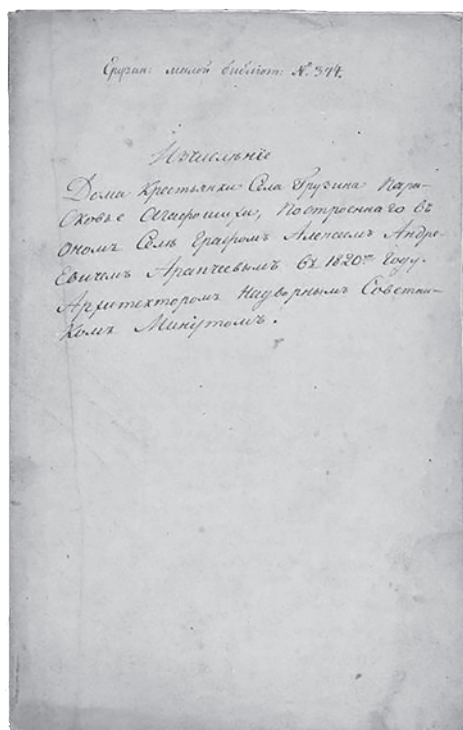 Грузин: милой библіот: №. 374.
Изчисленіе
Дома Крестьянки Села Грузина Пара-
сковье Агафошихи, Построеннаго въ
ономъ Селѣ Графомъ Алексѣемъ Андре-
евичемъ Аракчеевымъ въ 1820мъ Году.
Архитекторомъ Надворнымъ Советни-
комъ Минутомъ.